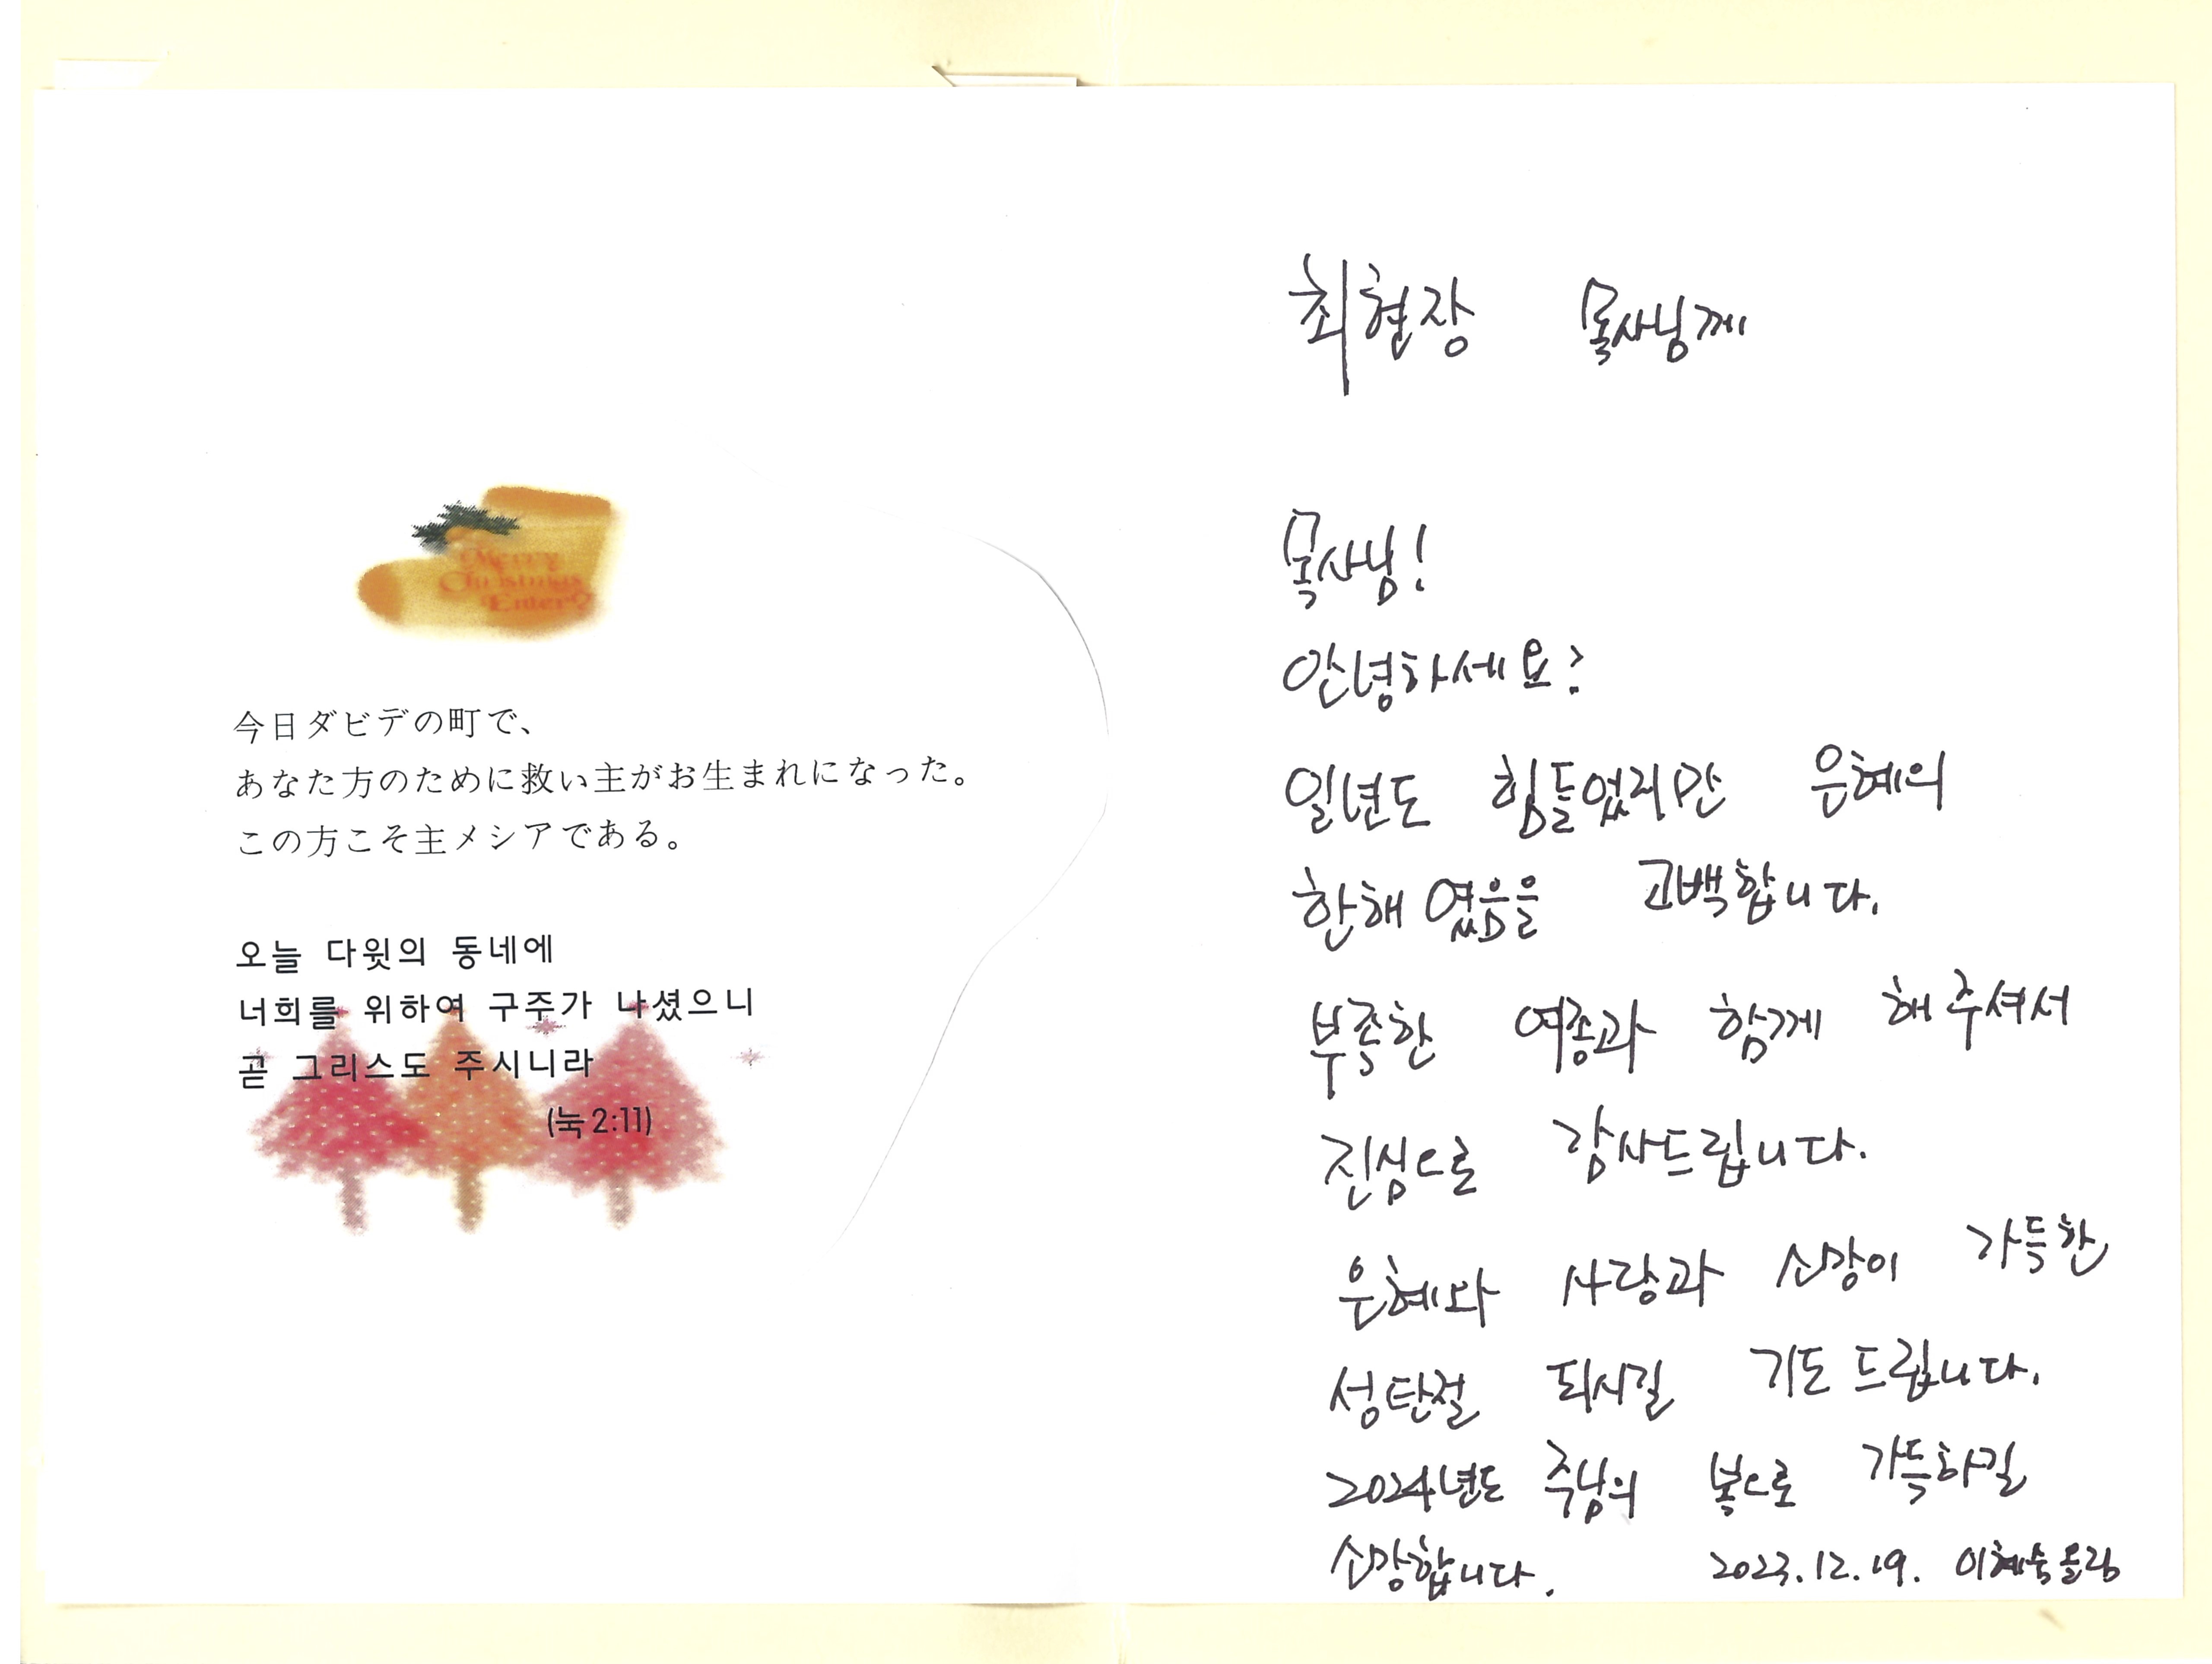 Merry
Christmas
Enter?
今日ダビデの町で、
あなた方のために救い主がお生まれになった。
この方こそ主メシアである。
오늘 다윗의 동네에
너희를 위하여 구주가 나셨으니
곧 그리스도 주시니라
(눅2:11)
최현장 목사님께
목사님!
안녕하세요?
일년도 힘들었지만 은혜의
한해 였음을 고백합니다.
부족한 여종과 함께 해 주셔서
진심으로 감사드립니다.
은혜와 사랑과 소망이 가득한
성탄절 되시길 기도 드립니다.
2024년도 주님의 복으로 가득하길
소망합니다. 2023.12.19. 이혜숙올림